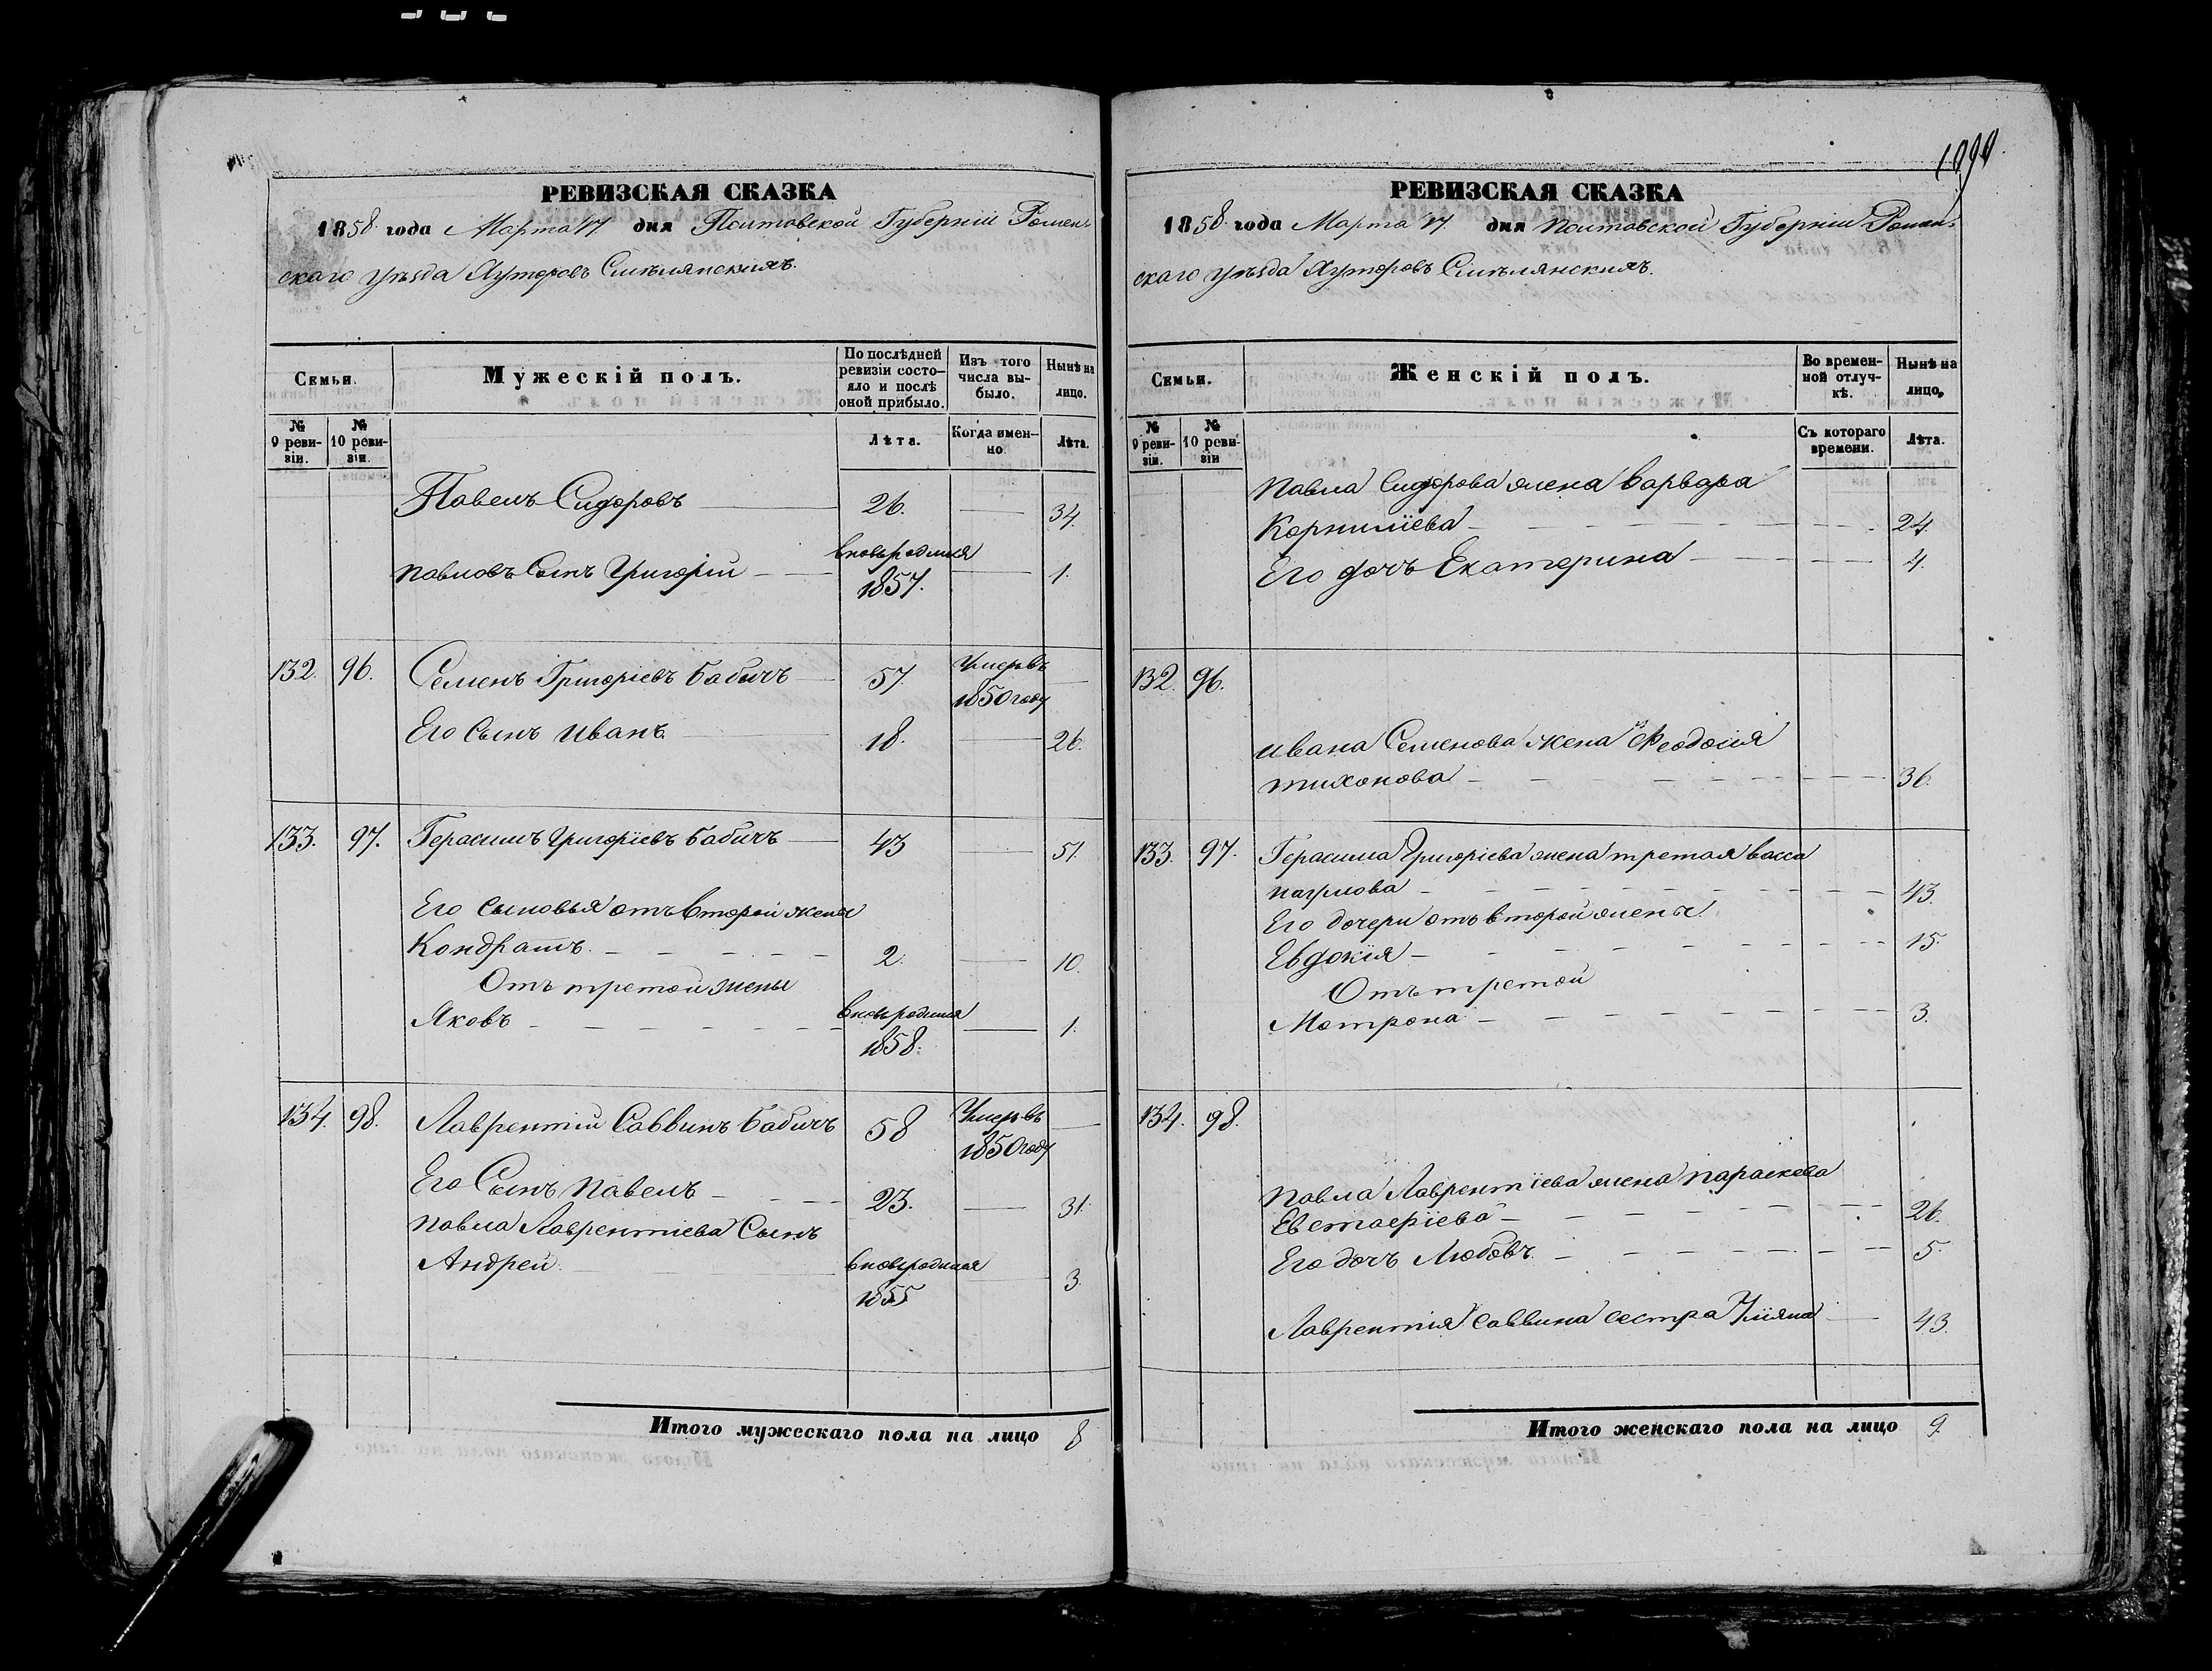 1099
РЕВИЗСКАЯ СКАЗКА
1858 года Марта 17 дня Полтавской Губерніи Ромен-
скаго уѣзда Хуторовъ Смѣлянскихъ.
Семьи.
Мужескій полъ.
По послѣдней ревизіи состояло и послѣ оной прибыло.
Изъ того числа выбыло.
Нынѣ на лицо.
№ 9 ревизіи.
№ 10 ревизіи.
Лѣта.
Когда именно.
Лѣта.
Павелъ Сидоровъ 26. 34.
вновьродился
Павловъ Сынъ Григорій 1857. 1.
132. 96. Семенъ Григоріевъ Бабичъ 57 Умеръ въ
1850 году
Его Сынъ Иванъ 18. 26.
133. 97. Герасимъ Григоріевъ Бабичъ 43 51.
Его Сыновья отъ второй жены
Кондратъ 2. 10.
Отъ третой жены
Яковъ вновьродился 1.
1858.
134. 98. Лаврентій Саввинъ Бабичъ 58 Умеръ въ
1850 году
Его Сынъ Павелъ 23. 31.
Павла Лаврентіева Сынъ
Андрей вновьродился 3.
1855
Итого мужескаго пола на лицо 8
РЕВИЗСКАЯ СКАЗКА
1858 года Марта 17. дня Полтавской Губерніи Ромен-
скаго уѣзда Хуторовъ Смѣлянскихъ.
Семьи.
Женскій полъ.
Во временной отлучкѣ.
Нынѣ на лицо.
№ 9 ревизіи.
№ 10 ревизіи
Съ котораго времени.
Лѣта.
Павла Сидорова жена Варвара
Корниліева 24.
Его дочь Екатерина 4.
132. 96.
Ивана Семенова жена Феодосія
Тихонова 36.
133. 97. Герасима Григоріева жена третая Васса
Наумова 43.
Его дочери отъ второй жены
Евдокія 15.
Отъ третой
Мотрона 3.
134. 98.
Павла Лаврентіева жена Параскева
Евстафіева 26.
Его дочь Любовь 5.
Лаврентія Саввина сестра Уліяна 43.
Итого женскаго пола на лицо 9.